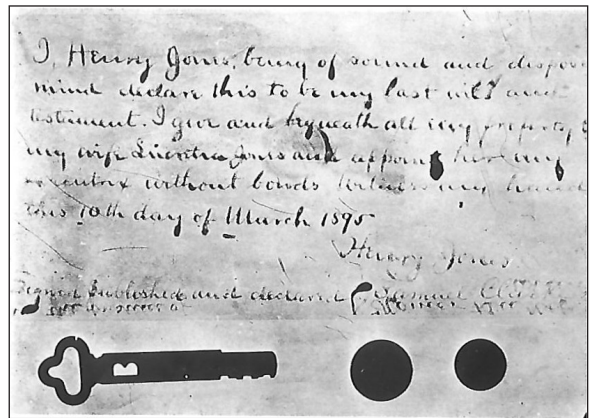 I, Henry Jones, being of sound and dispos
mind declare this to be my last will and
testament. I give and bequeath all my property
my wife Jones and appoint her my
executrix without bonds Witness my hand
this 10th day of March 1895
Henry Jones
Signed Published and declared Samuel
in presence of
B